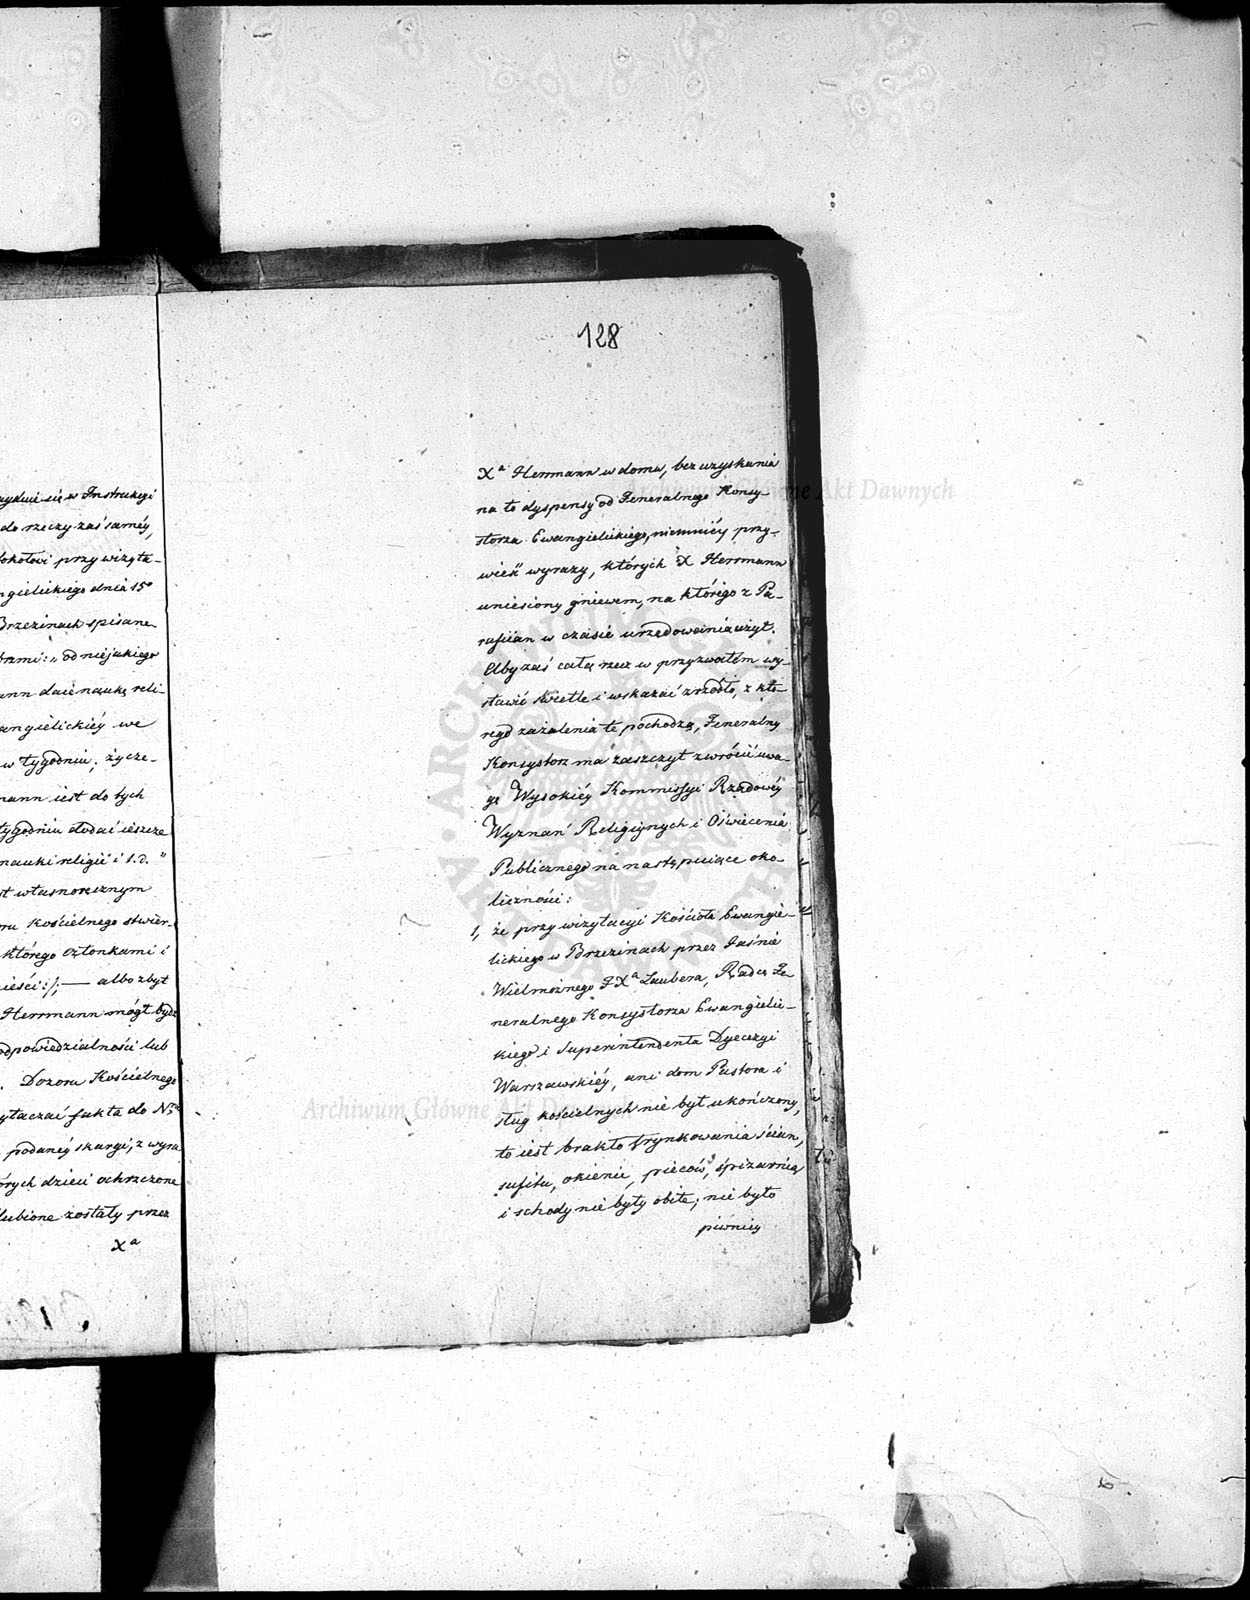 nayduie się w Instrukcyi
do rzeczy zaś saméy,
tokołowi przy wizyta-
ngielickiego dnia 15º
Brzezinach spisane
brami: „od nieiakiego
ann daie naukę reli-
angielickiéy we
w tygodniu; życze-
mann iest do tych
tygodniu dodać ieszcze
nauki religii i t.d."
st własnoręcznym
ru kościelnego stwier-
którego członkami i
ieści:/; — albo zbyt
Herrmann mógł bydź
odpowiedzialności lub
. Dozoru Kościelnego
ytaczać fakta do Nru
podanéy skargi, z wyra
órych dzieci ochrzczone
lubione zostały przez
Xa
128
Xa Herrmann w domu, bez uzyskania
na to dyspensy od Generalnego Konsy-
storza Ewangielickiego, niemniéy przy-
wieść wyrazy, których X Herrmann
uniesiony gniewem, na którego z Pa-
rafiian w czasie urzędowania użył.
Aby zaś całą rzecz w przyzwoitém wy-
stawić świetle i wskazać zrzódło, z któ-
rego zażalenia te pochodzą, Generalny
Konsystorz ma zaszczyt zwrócić uwa-
gę Wysokiéy Kommissyi Rządowéy
Wyznań Religiynych i Oświecenia
Publicznego na następuiące oko-
liczności:
1, że przy wizytacyi Kościoła Ewangie-
lickiego w Brzezinach przez Jaśnie
Wielmożnego JXa Laubera, Radcę Ge-
neralnego Konsystorza Ewangielic-
kiego i Superintendenta Dyecezyi
Warszawskiéy, ani dom Pastora i
sług kościelnych nie był ukończony,
to iest brakło tynkowania ścian,
sufitu, okienic, pieców, śpiżarnią
i schody nie były obite; nie było
piwnicy
Archiwum Główne Akt Dawnych
Archiwum Główne Akt Dawnych